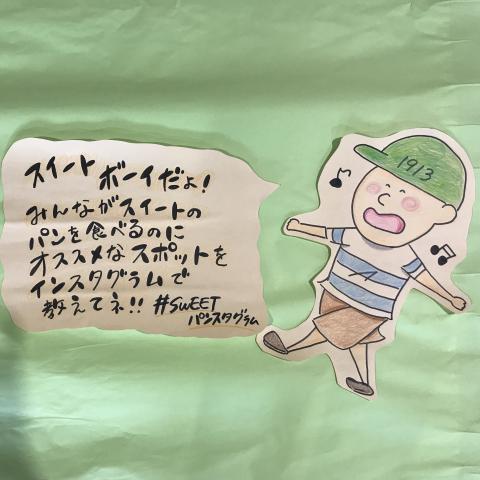 スイート ボーイだよ!
みんながスイートの
パンを食べるのに
オススメなスポットを
インスタグラムで
教えてネ!! #SWEET
パンスタグラム
1913